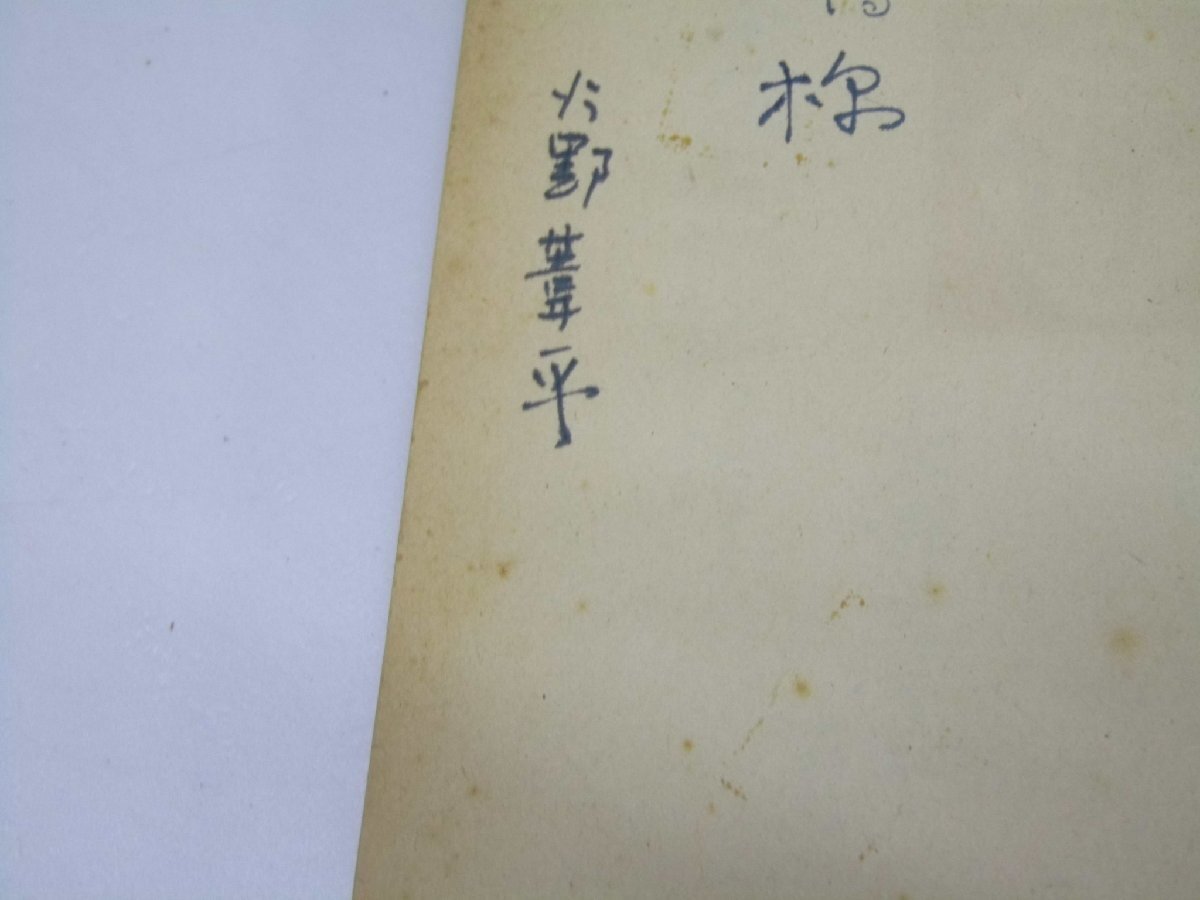 様
火野葦平